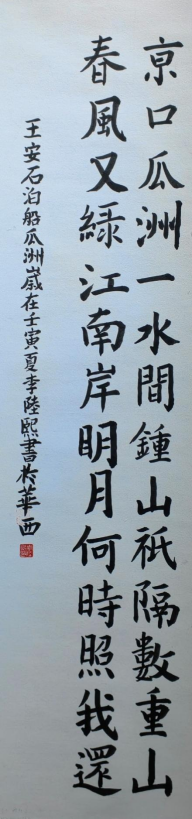 京口瓜洲一水間鍾山衹隔數重山
春風又綠江南岸明月何時照我還
王安石泊船瓜洲歲在壬寅夏李陸熙書於華西